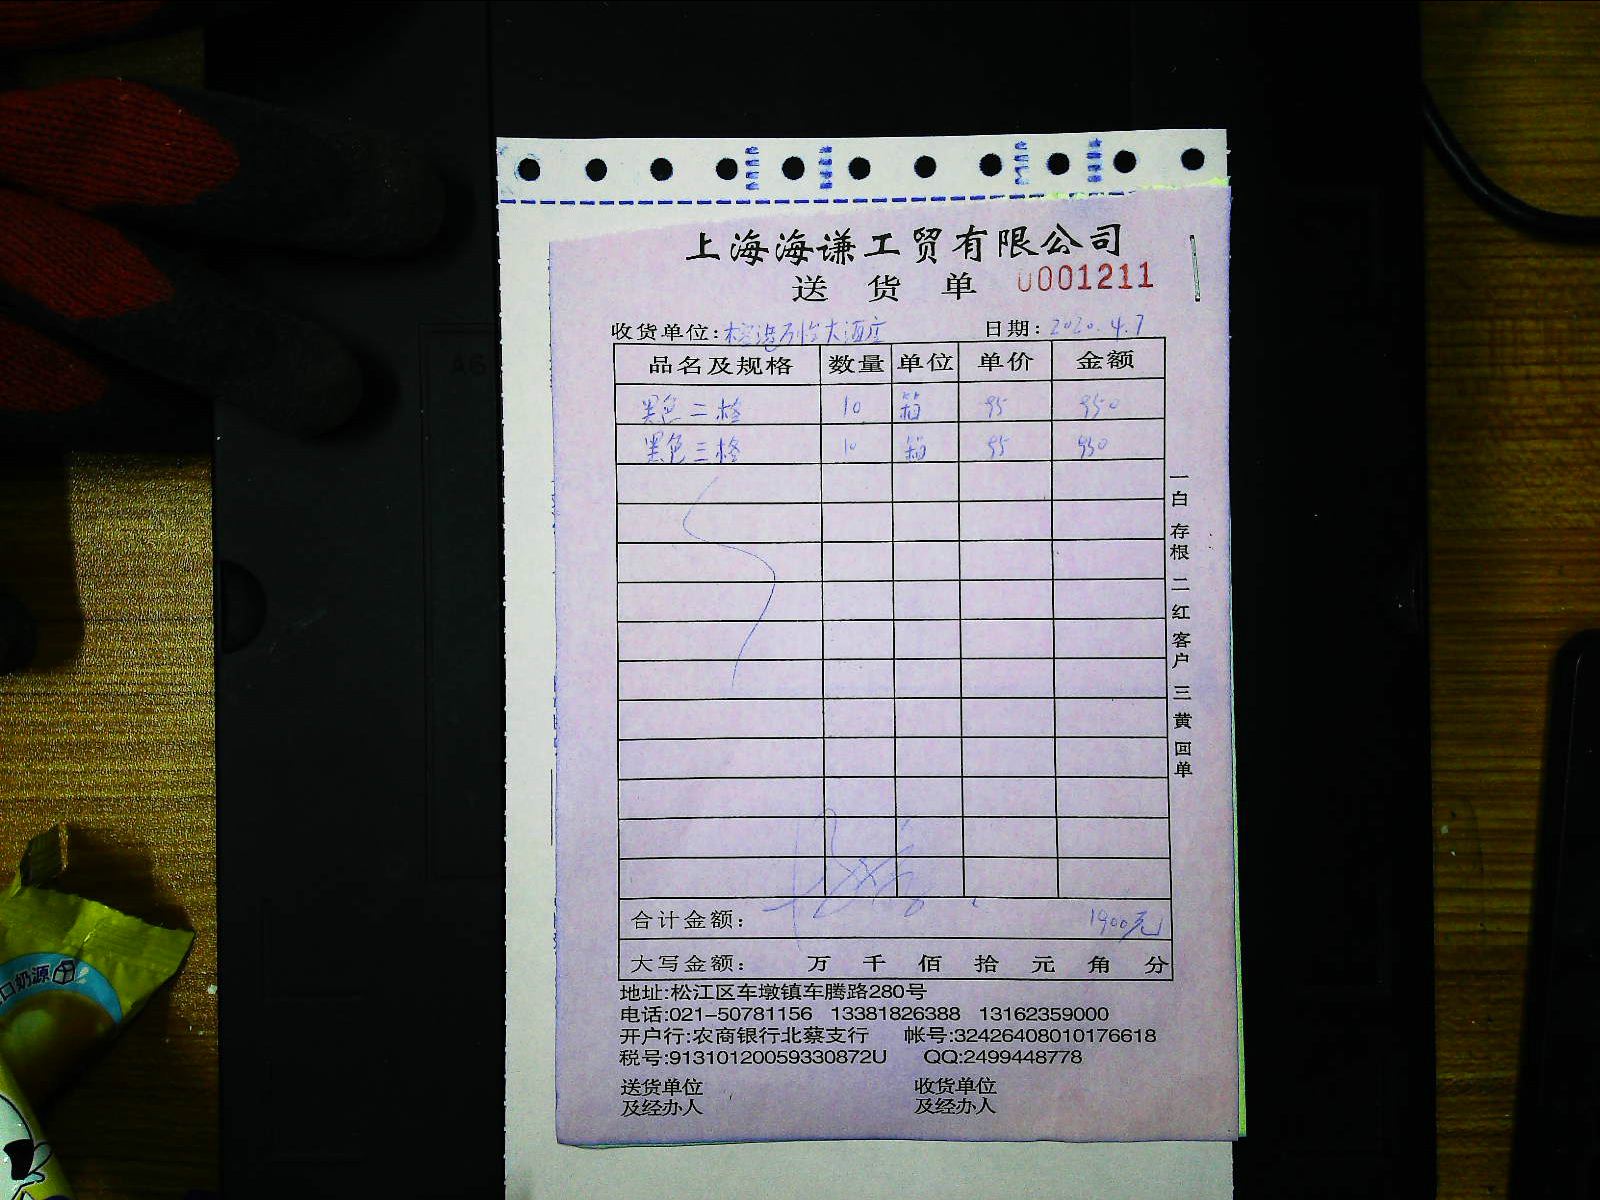 上海海谦工贸有限公司
送货单 0001211
收货单位: 大酒店 日期: 2020.4.7
品名及规格 数量 单位 单价 金额
黑色二格 10 箱 95 950
黑色三格 10 箱 95 950
一白存根 二红客户 三黄回单
合计金额: 1900元
大写金额: 万 千 佰 拾 元 角 分
地址:松江区车墩镇车腾路280号
电话:021-50781156 13381826388 13162359000
开户行:农商银行北蔡支行 帐号:32426408010176618
税号:91310120059330872U QQ:2499448778
送货单位 收货单位
及经办人 及经办人
A6
口奶源